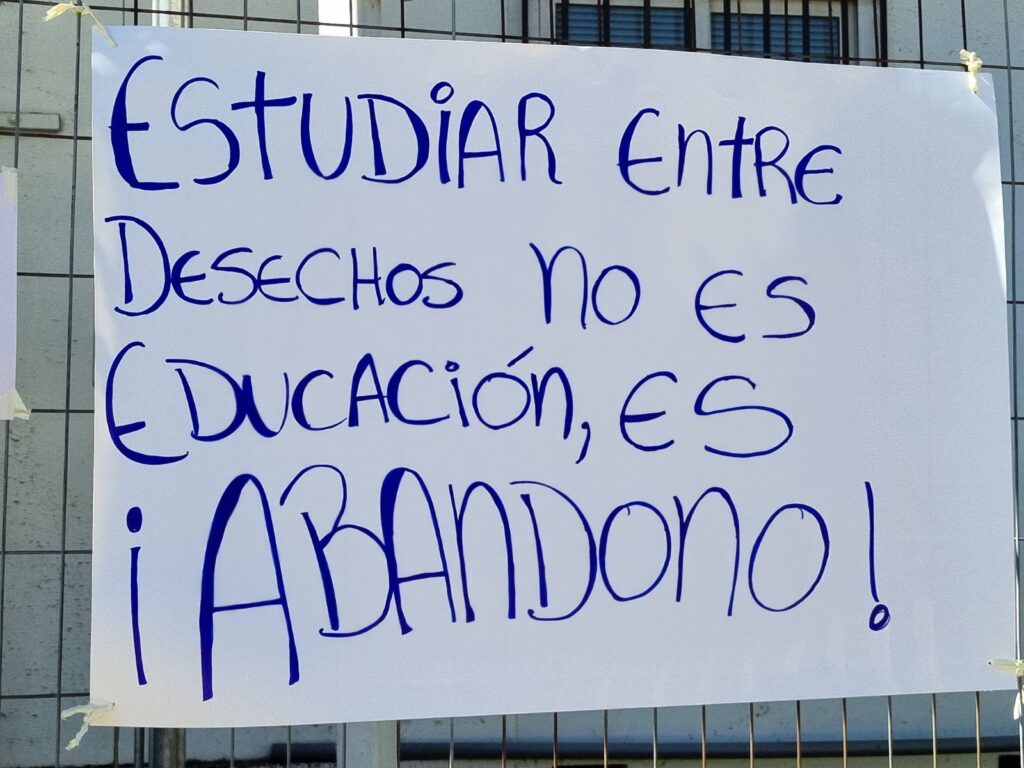 ESTUDIAR ENTRE
DESECHOS NO ES
EDUCACIÓN, ES
¡ABANDONO!